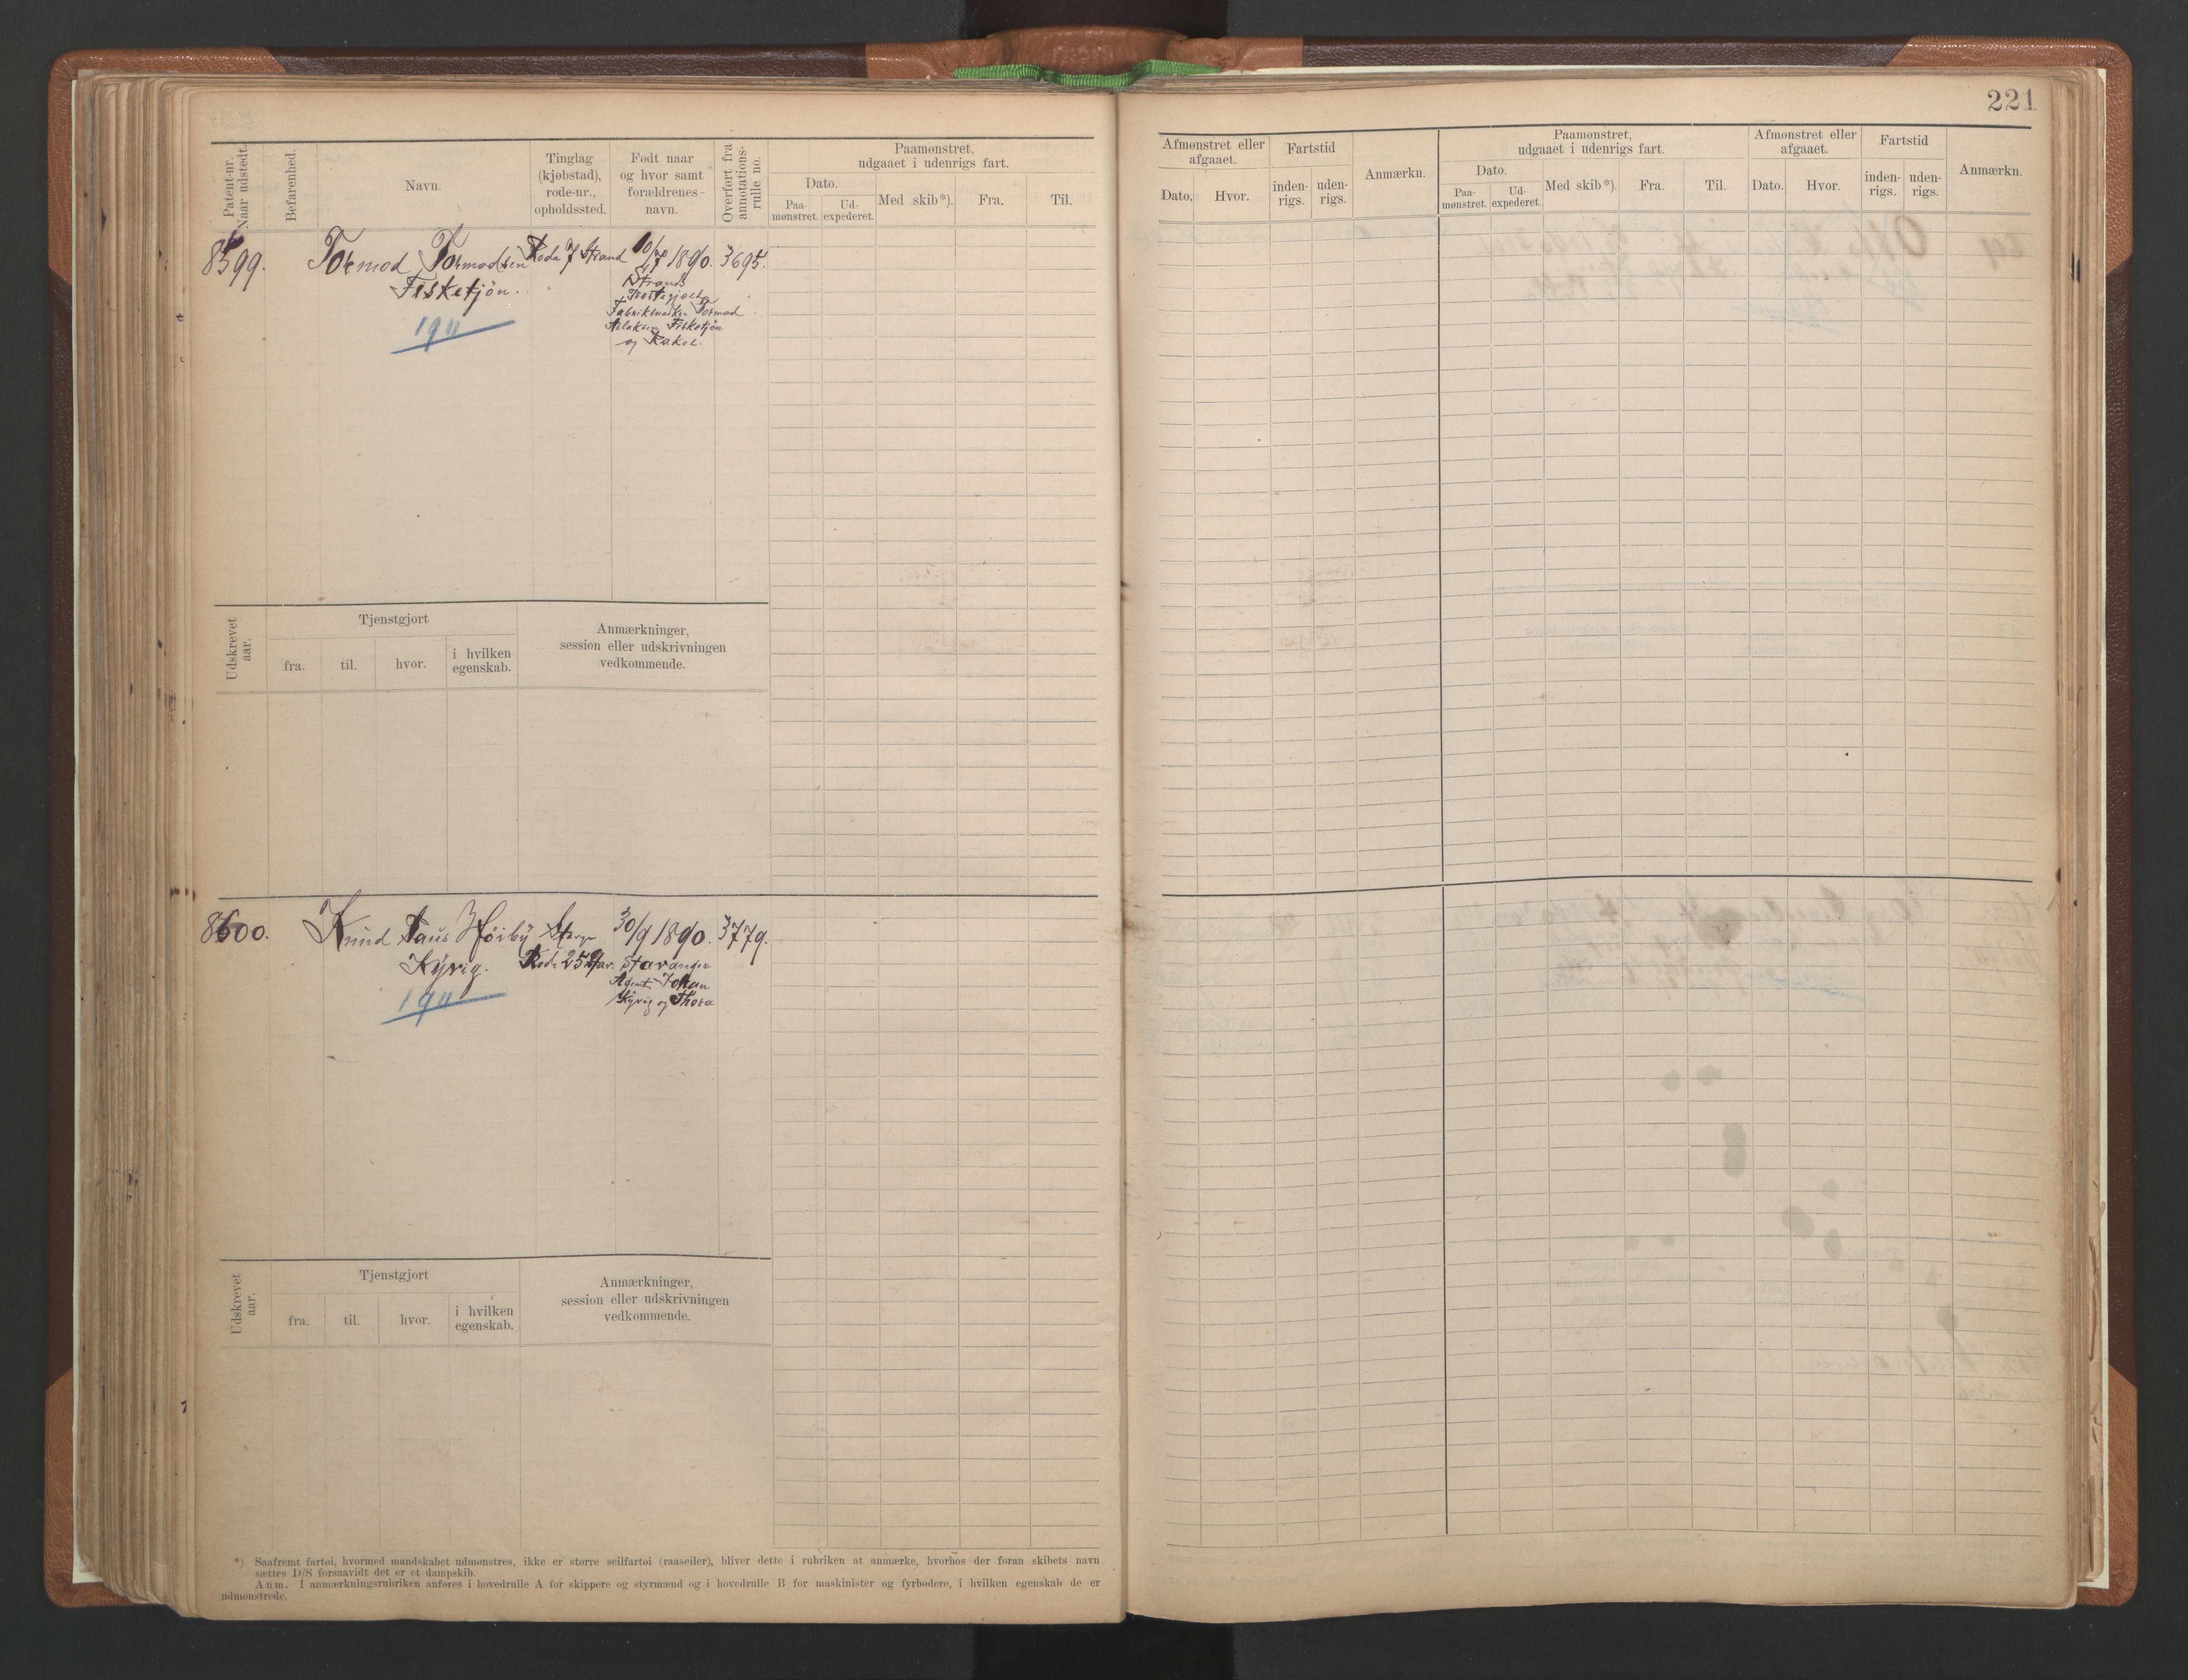 221
Patent-nr. Naar udstedt.
Befarenhed.
Navn.
Tinglag (kjøbstad), rode-nr., opholdssted.
Født naar og hvor samt forældrenes-navn.
Overført fra annotations-rulle no.
Paamønstret, udgaaet i udenrigs fart.
Dato.
Paa-mønstret.
Ud-expederet.
Med skib*).
Fra.
Til.
Afmønstret eller afgaaet.
Dato.
Hvor.
Fartstid
inden-rigs.
uden-rigs.
Anmærkn.
Paamønstret, udgaaet i udenrigs fart.
Dato.
Paa-mønstret.
Ud-expederet.
Med skib*).
Fra.
Til.
Afmønstret eller afgaaet.
Dato.
Hvor.
Fartstid
inden-rigs.
uden-rigs.
Anmærkn.
8599. Tormod Tormodsen Rode 7 Strand 10/7 1890. 3695.
Fisketjön. Strand
1911
Fabrikmester Tormod
Aslaksen Fisketjön
og Rakel.
Udskrevet aar.
Tjenstgjort
fra.
til.
hvor.
i hvilken egenskab.
Anmærkninger,
session eller udskrivningen
vedkommende.
8600. Knud Taus Höiby Stavgr 30/9 1890. 3779.
Kyvig. Rode 25 Stavanger
1911
Agent Johan
Kyvig og Thora
Udskrevet aar.
Tjenstgjort
fra.
til.
hvor.
i hvilken egenskab.
Anmærkninger,
session eller udskrivningen
vedkommende.
*) Saafremt fartøi, hvormed mandskabet udmønstres, ikke er større seilfartøi (raaseiler), bliver dette i rubriken at anmærke, hvorhos der foran skibets navn
sættes D/S forsaavidt det er et dampskib.
Anm. I anmærkningsrubriken anføres i hovedrulle A for skippere og styrmænd og i hovedrulle B for maskinister og fyrbødere, i hvilken egenskab de er
udmønstrede.